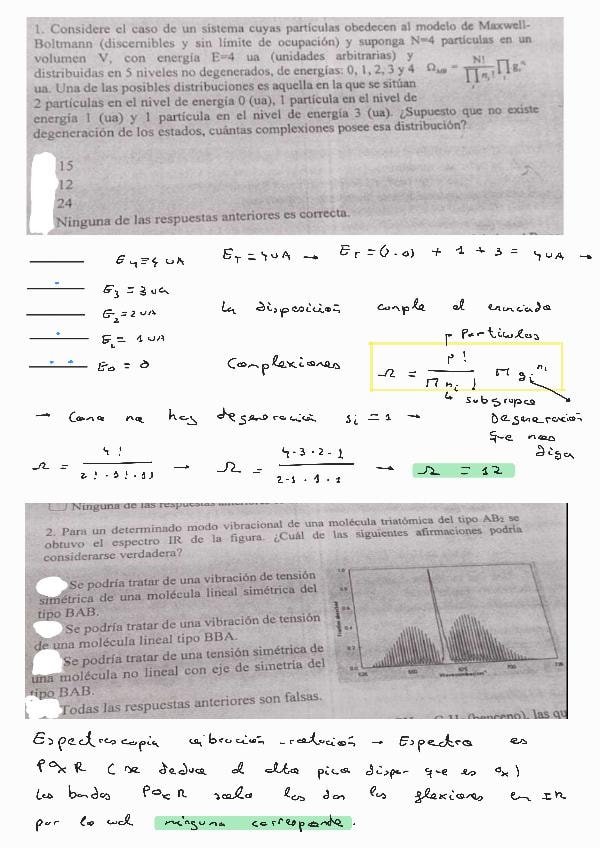 1. Considere el caso de un sistema cuyas partículas obedecen al modelo de Maxwell-
Boltmann (discernibles y sin límite de ocupación) y suponga N=4 partículas en un
volumen V, con energía E=4 ua (unidades arbitrarias) y
distribuidas en 5 niveles no degenerados, de energías: 0, 1, 2, 3 y 4
ua. Una de las posibles distribuciones es aquella en la que se sitúan
2 partículas en el nivel de energía 0 (ua), 1 partícula en el nivel de
energía 1 (ua) y 1 partícula en el nivel de energía 3 (ua). ¿Supuesto que no existe
degeneración de los estados, cuántas complexiones posee esa distribución?
15
12
24
Ninguna de las respuestas anteriores es correcta.
E4=4 UA ET=4UA → ET=(2·0) + 1 + 3 = 4UA →
E3 = 3ua
E2=2UA La disposición cumple el enunciado
E1 = 1UA
E0 = 0 Complexiones Ω = P! / Π ni! Π gi^ni
Partículas
subgrupos
→ Como no hay degeneración gi = 1 → Degeneración
que nos
diga
Ω = 4! / 2!·1!·1! → Ω = 4·3·2·1 / 2·1·1·1 → Ω = 12
Ninguna de las respuestas
2. Para un determinado modo vibracional de una molécula triatómica del tipo AB2 se
obtuvo el espectro IR de la figura. ¿Cuál de las siguientes afirmaciones podría
considerarse verdadera?
Se podría tratar de una vibración de tensión
simétrica de una molécula lineal simétrica del
tipo BAB.
Se podría tratar de una vibración de tensión
de una molécula lineal tipo BBA.
Se podría tratar de una tensión simétrica de
una molécula no lineal con eje de simetría del
tipo BAB.
Todas las respuestas anteriores son falsas.
(benceno), las qu
Espectroscopia vibración-rotación → Espectro es
PQR (se deduce el alto pico
Las bandas PQR solo las dan las flexiones en IR
por lo cual ninguna corresponde.